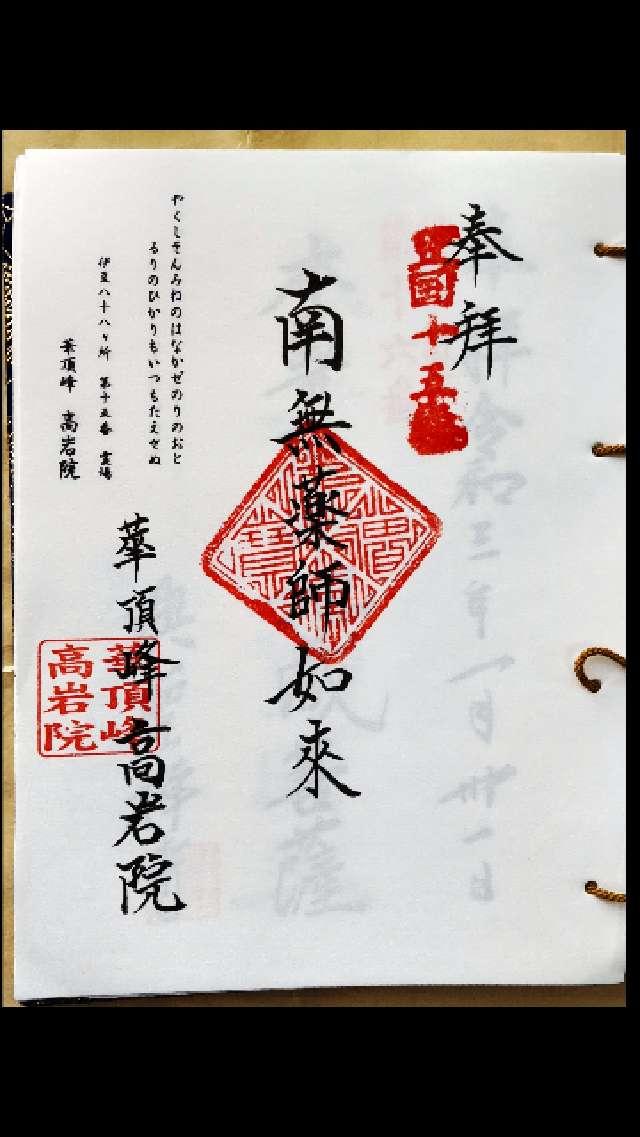 奉拝
豆國十五番
南無薬師如來
華頂峰高岩院
華頂峰
高岩院
やくしそんみねのはなかぜのりのおと
るりのひかりもいつもたえせぬ
伊豆八十八ヶ所 第十五番 霊場
華頂峰 高岩院
令和三年一月卅一日